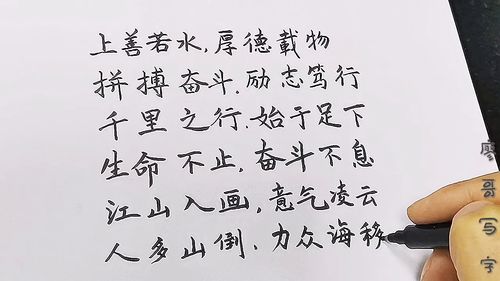 上善若水,厚德載物
拼搏奋斗,励志笃行
千里之行.始于足下
生命不止,奋斗不息
江山入画,意气凌云
人多山倒.力众海移
廖哥写字